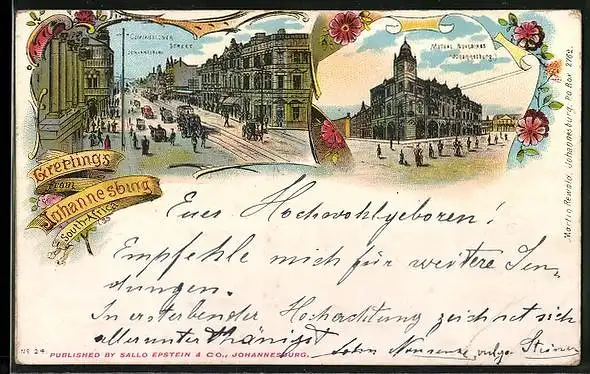 COMMISSIONER
STREET
JOHANNESBURG
MUTUAL BUILDINGS
JOHANNESBURG.
Greetings
from
Johannesburg
South-Africa
Martin Rewald, Johannesburg. Po. Box 2762.
Euer Hochwohlgeboren!
Empfehle mich für weitere Sen-
dungen.
In ersterbender Hochachtung zeichnet sich
allerunterthänigst John Nonsense vulgo Steiner
No 24
PUBLISHED BY SALLO EPSTEIN & CO., JOHANNESBURG.